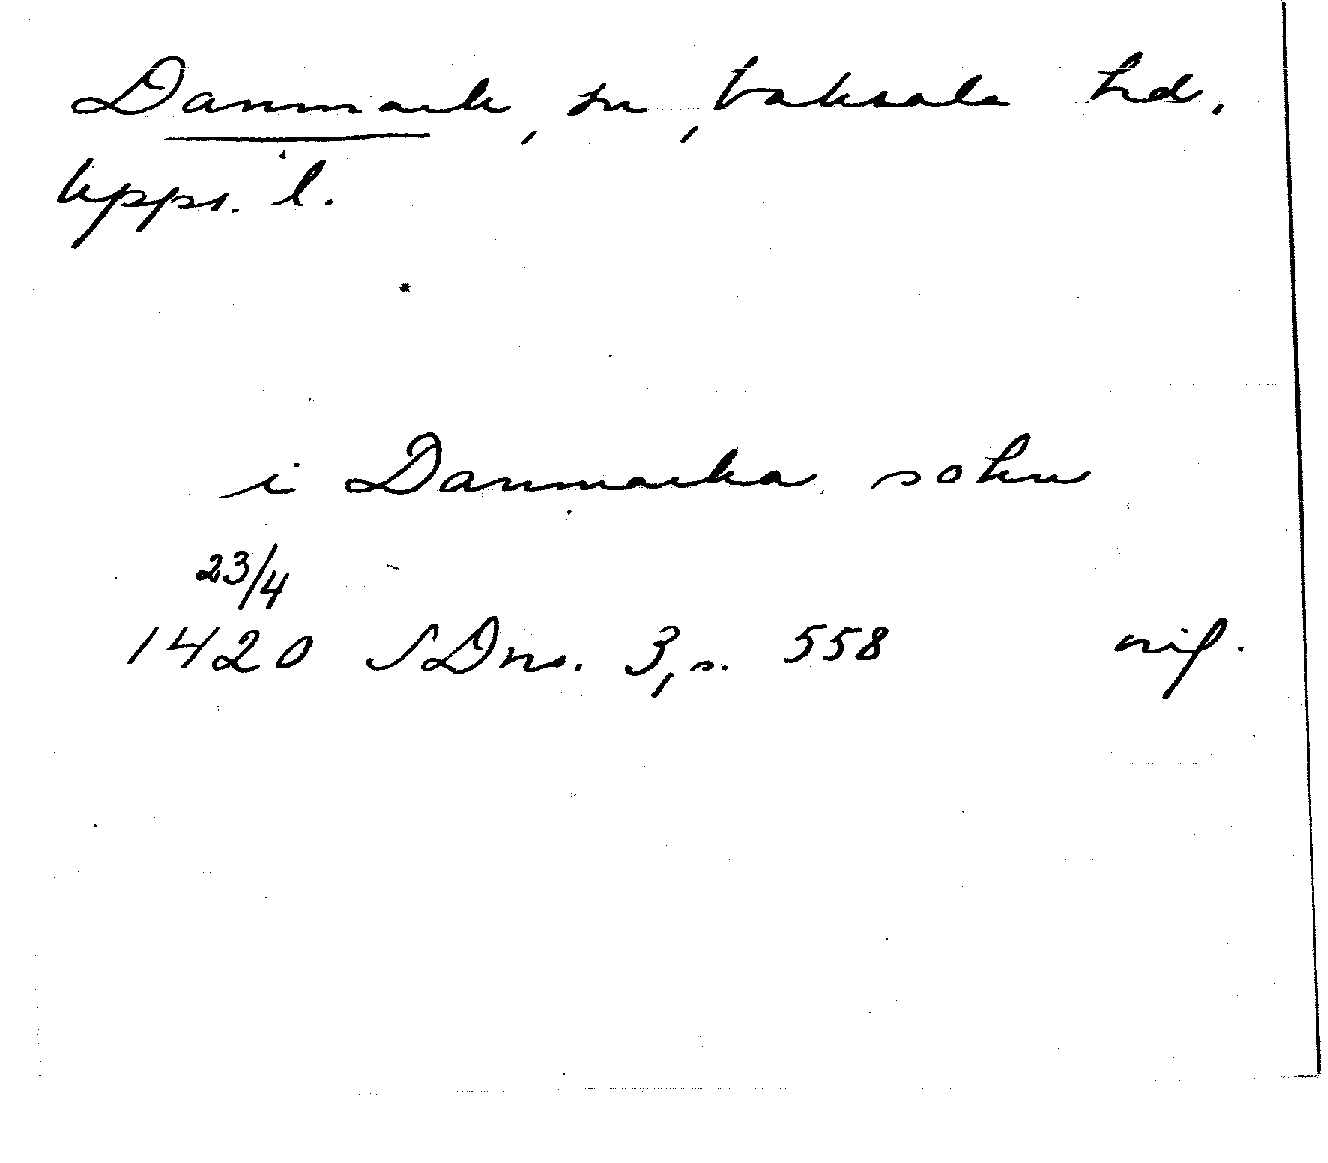 Danmark, sn, Vaksala hd.
Upps. l.
i Danmarka sokn
23/4
1420 SDns. 3, s. 558 orig.